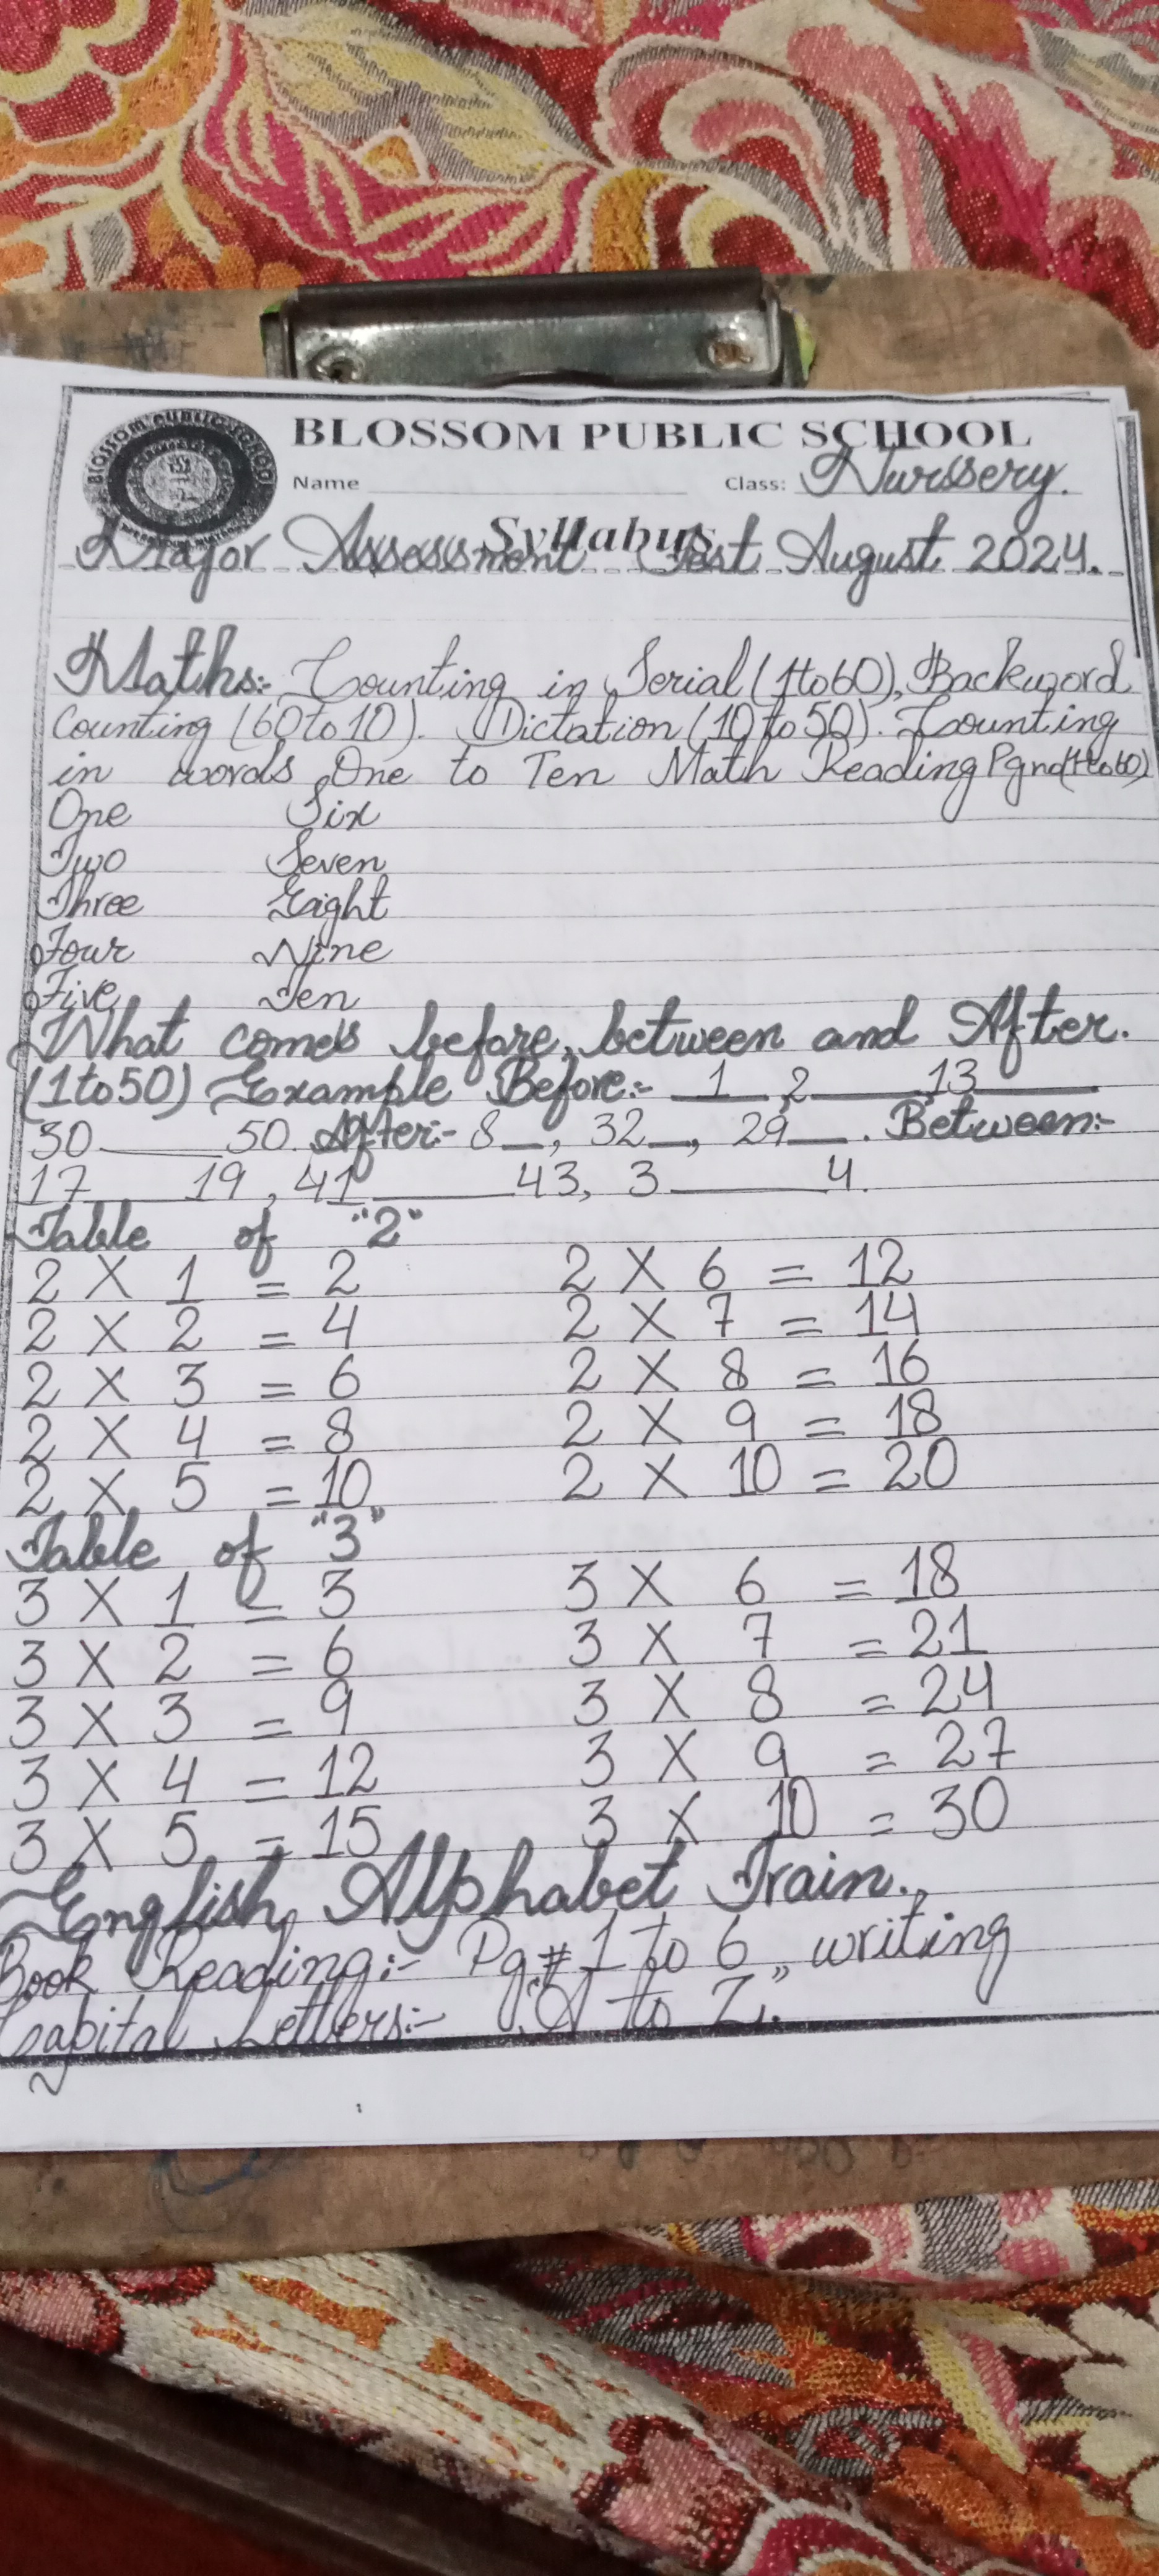 BLOSSOM PUBLIC SCHOOL
Name Class: Nurssery.
Syllabus
Major Assessment Test August 2024.
Maths:- Counting in Serial (1to60), Backword
Counting (60to10). Dictation (10 to 50). Counting
in words One to Ten Math Reading Pgno(1to60)
One Six
Two Seven
Three Eight
Four Nine
Five Ten
What comes before, between and After.
(1to50) Example Before:- 1, 2 13
30 50. After:- 8, 32, 29. Between:-
17 19, 41 43, 3 4.
Table of "2"
2 X 1 = 2 2 X 6 = 12
2 X 2 = 4 2 X 7 = 14
2 X 3 = 6 2 X 8 = 16
2 X 4 = 8 2 X 9 = 18
2 X 5 = 10 2 X 10 = 20
Table of "3"
3 X 1 = 3 3 X 6 = 18
3 X 2 = 6 3 X 7 = 21
3 X 3 = 9 3 X 8 = 24
3 X 4 = 12 3 X 9 = 27
3 X 5 = 15 3 X 10 = 30
English, Alphabet Train.
Book Reading:- Pg# 1 to 6, writing
Capital Letters:- "A to Z".